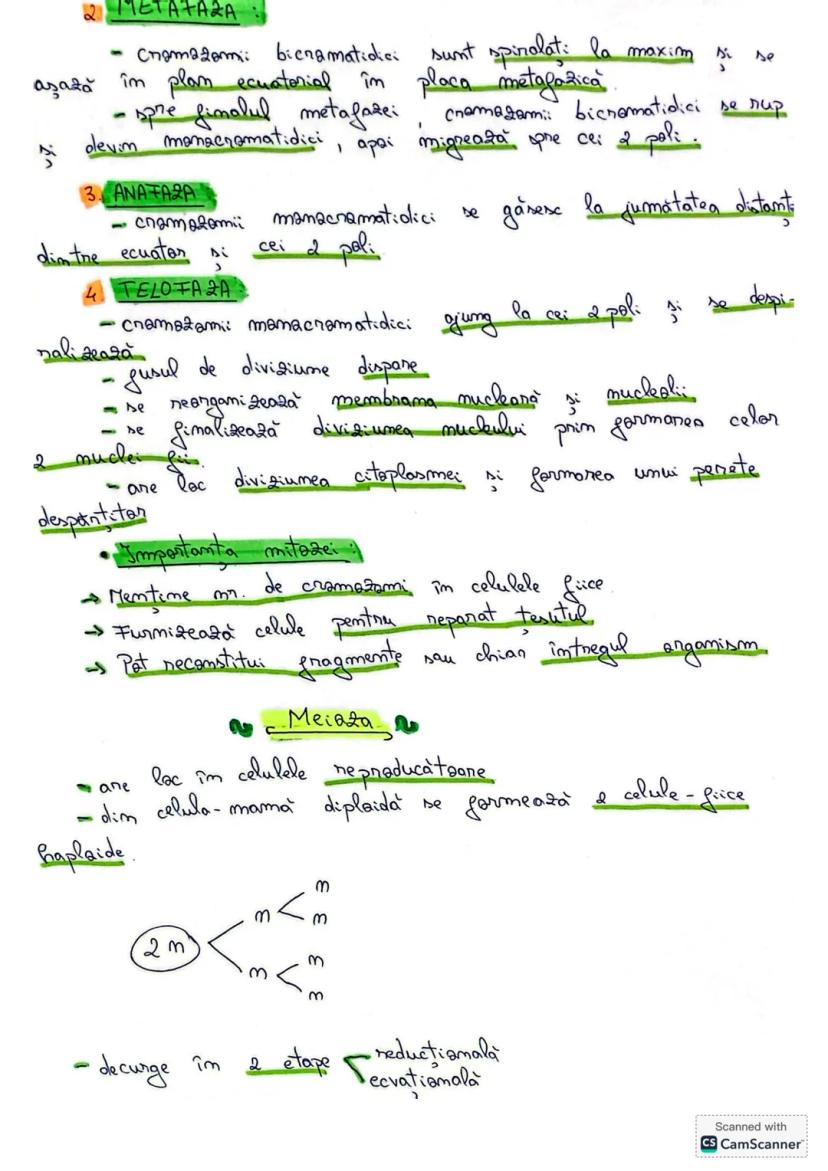 2 METAFAZA :
- cromozomii bicromatidici sunt spiralați la maxim și se
așază în plan ecuatorial în placa metafazică.
- spre finalul metafazei, cromozomii bicromatidici se rup
și devin monocromatidici, apoi migrează spre cei 2 poli.
3. ANAFAZA
- cromozomii monocromatidici se găsesc la jumătatea distanț
dintre ecuator și cei 2 poli
4. TELOFAZA:
- cromozomii monocromatidici ajung la cei 2 poli și se despi-
ralizează
- fusul de diviziune dispare
- se reorganizează membrana nucleară și nucleolii
- se finalizează diviziunea nucleului prin formarea celor
2 nuclei fii.
- are loc diviziunea citoplasmei și formarea unui perete
despărțitor
• Importanța mitozei :
→ Menține nr. de cromozomi în celulele fiice.
→ Furnizează celule pentru reparat țesutul
→ Pot reconstitui fragmente sau chiar întregul organism
~ Meioza ~
- are loc în celulele reproducătoare
- din celula-mamă diploidă se formează 2 celule-fiice
haploide.
n
n < n
2n
n < n
n
- decurge în 2 etape reducțională
ecvațională
Scanned with
CS CamScanner